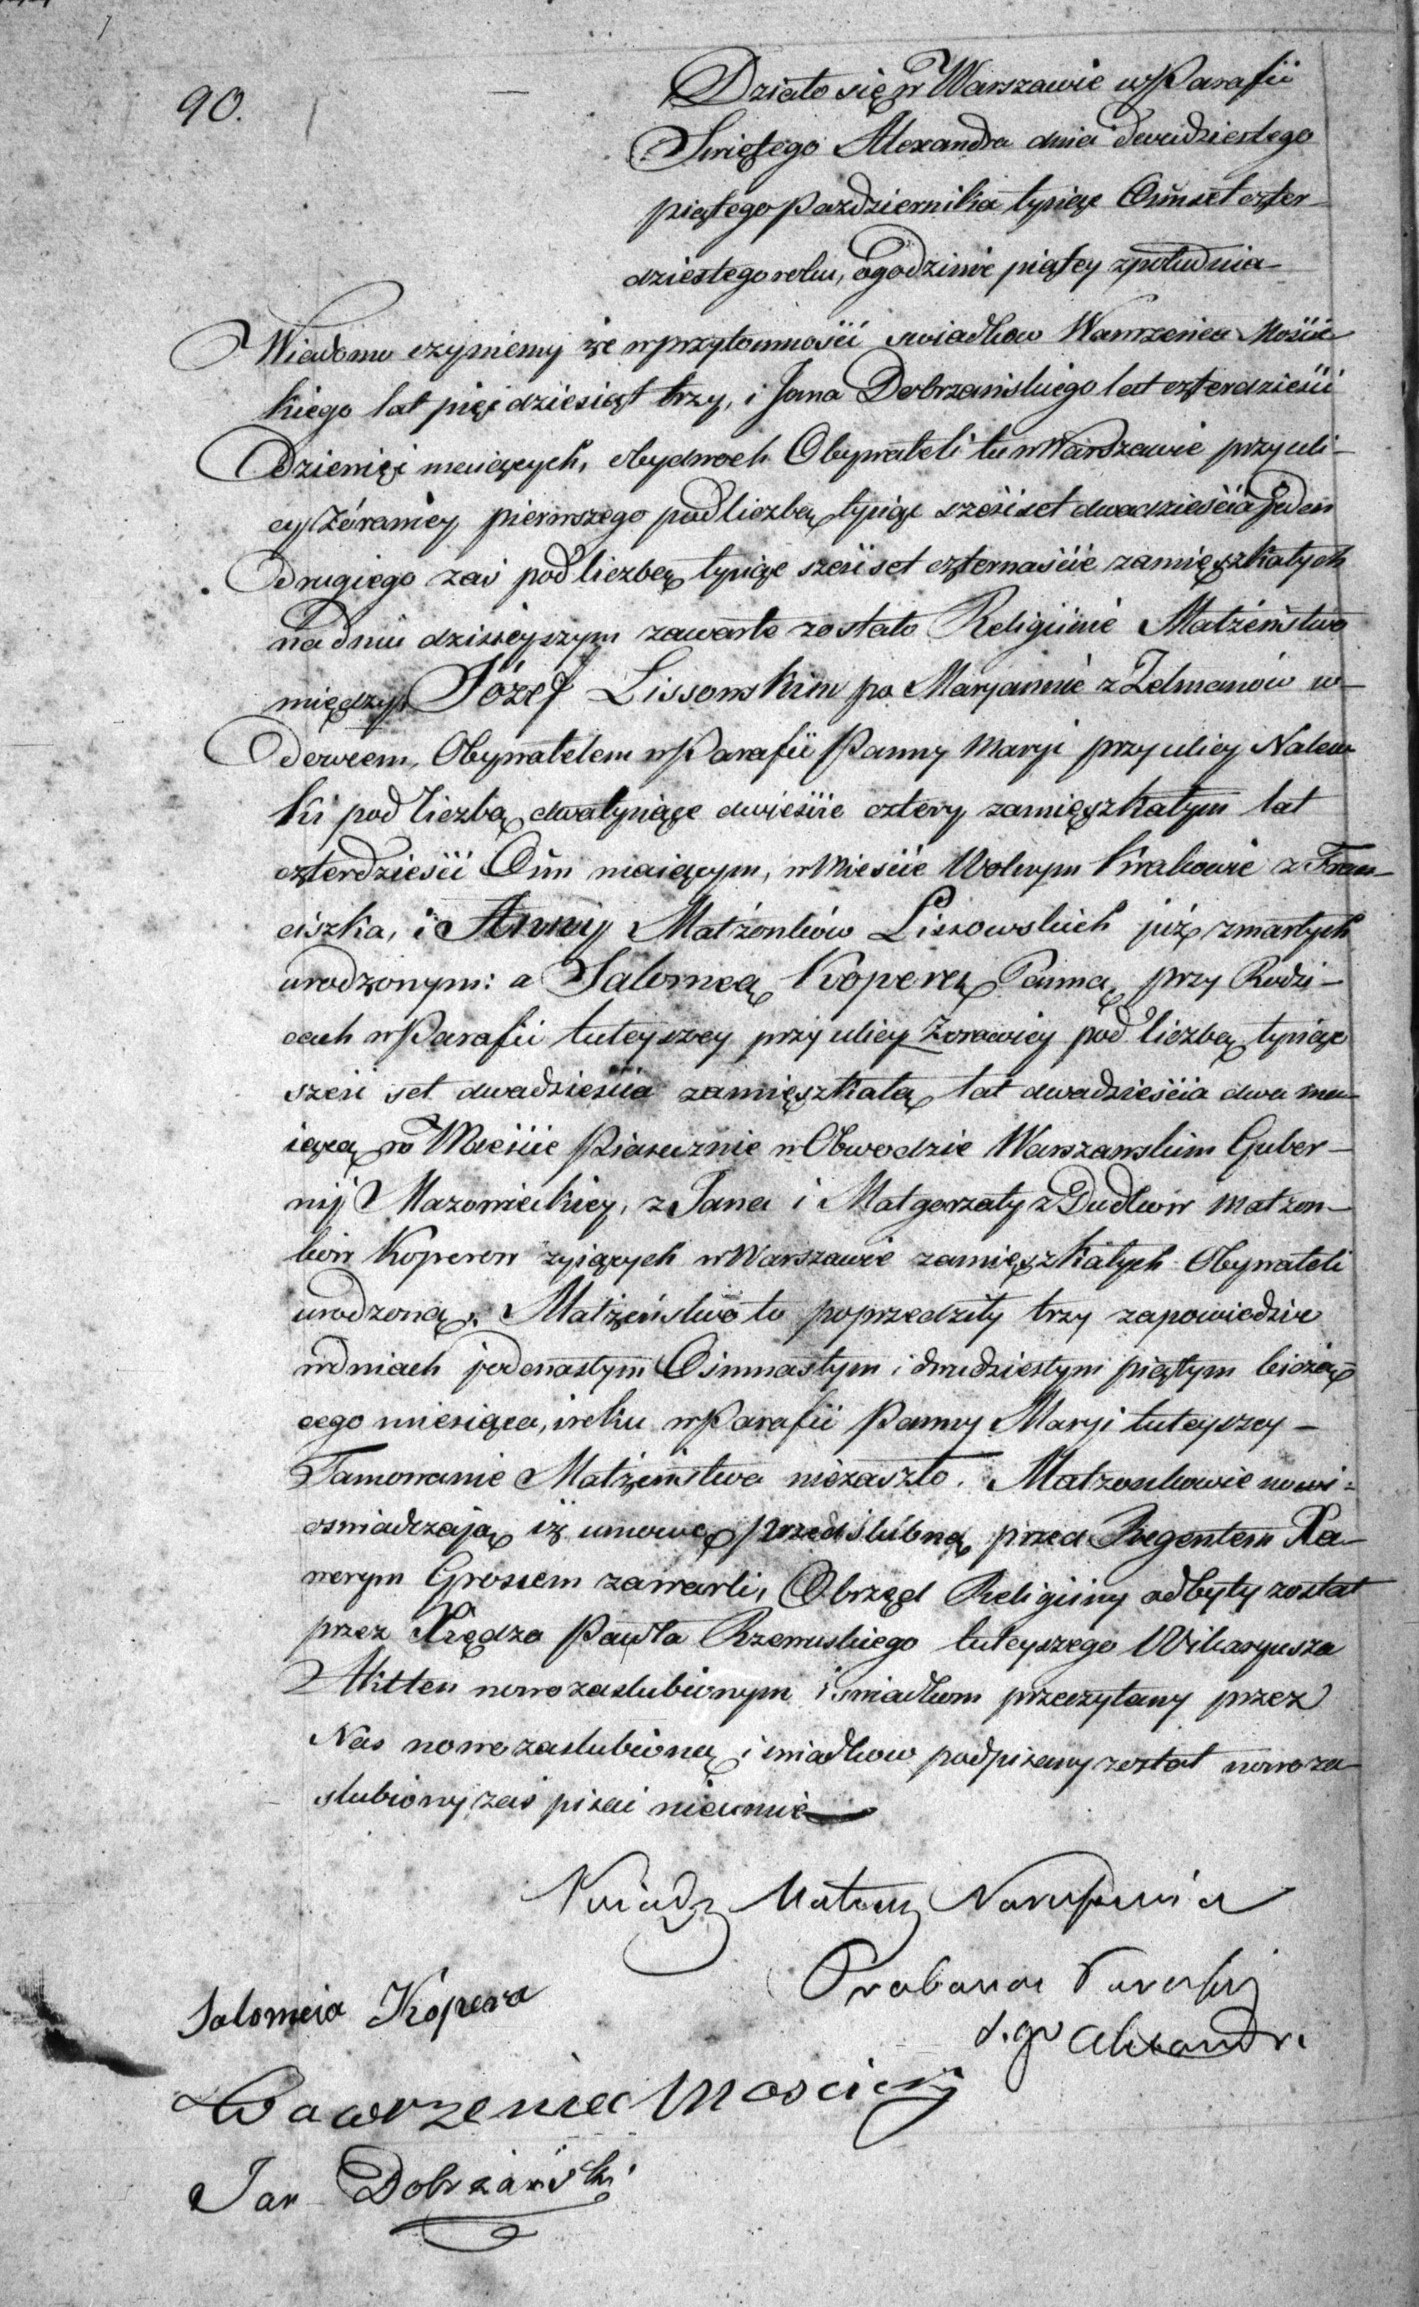 90.
Działo się w Warszawie w Parafii
Świętego Alexandra dnia dwudziestego
piątego Października tysiąc Ośmset czter-
dziestego roku, o godzinie piątey z południa
Wiadomo czyniemy że w przytomności swiadków Wawrzeńca Mościc
kiego lat pięćdziesiąt trzy, i Jana Dobrzańskiego lat czterdzieści
Dziewięć maiących, obydwoch Obywateli tu w Warszawie przy uli-
cy Żórawiey pierwszego pod liczbą tysiąc sześćset dwadzieścia jeden
drugiego zaś pod liczbą tysiąc sześćset czternaście zamięszkałych
na dniu dzisieyszym zawarte zostało Religiinie Małżeństwo
między Józef Lissowskim po Maryannie z Zelmanów w-
dowcem, Obywatelem w Parafii Panny Maryi przy ulicy Nalew
ki pod liczbą dwatysiące dwieście cztery zamięszkałym lat
czterdzieści Ośm maiącym, w Mieście Wolnym Krakowie z Fran-
ciszka, i Anny Małżonków Lissowskich już zmarłych
urodzonym: a Salomeą Koperą Panną, przy Rodzi-
cach w Parafii tuteyszey przy ulicy Żorawiey pod liczbą tysiąc
sześć set dwadzieścia zamięszkałą lat dwadzieścia dwa ma-
iącą w Mieście Piasecznie w Obwodzie Warszawskim Guber-
nij Mazowieckiey, z Jana i Małgorzaty z Dudków małżon-
ków Koperow żyiących w Warszawie zamięszkałych Obywateli
urodzoną. Małżeństwo to poprzedziły trzy zapowiedzie
w dniach jedenastym Ośmnastym i dwudziestym piątym bieżą-
cego miesiąca, i roku w Parafii Panny Maryi tuteyszey -
Tamowanie Małżeństwa niezaszło. Małżonkowie nowi
oswiadczają iż umowę przedślubną przed Regentem Xa-
werym Grossem zawarli, Obrzęd Religiiny odbyty został
przez Xiędza Pawła Rzewuskiego tuteyszego Wikaryusza
Akt ten nowozaslubionym i swiadkom przeczytany przez
Nas nowozaslubioną i swiadków podpisany został nowoza-
slubiony zaś pisać nieumie
Xiądz Mateusz
Proboszcz Parafij
S.go Alexandra
Salomeia Kopera
Wawrzeniec Moscicki
Jan Dobrzański